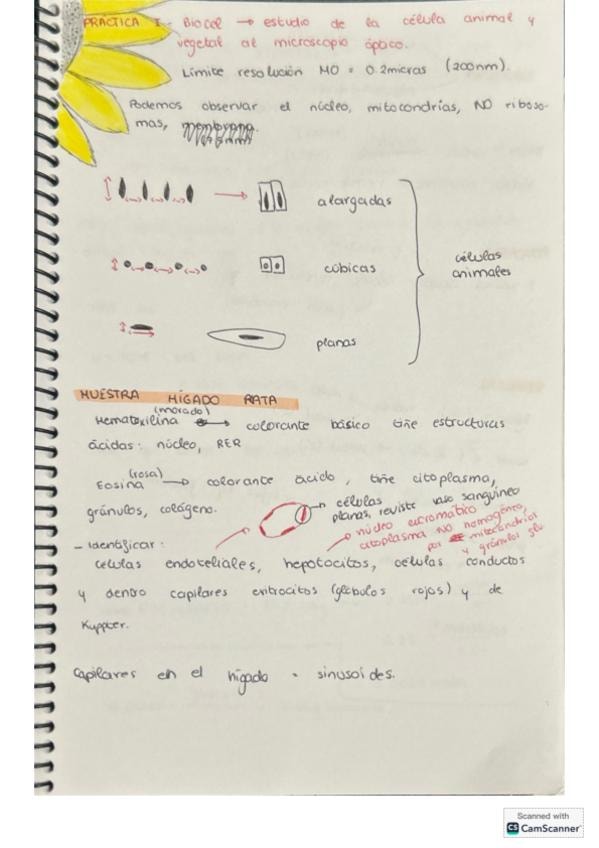 PRACTICA I - Biocel → estudio de la célula animal y
vegetal al microscopio óptico.
Límite resolución MO = 0.2micras (200nm).
Podemos observar el núcleo, mitocondrias, NO riboso-
mas,
alargadas
cúbicas
planas
células
animales
MUESTRA HÍGADO RATA
(morado)
Hematoxilina → colorante básico tiñe estructuras
ácidas: núcleo, RER
(rosa)
Eosina → colorante ácido, tiñe citoplasma,
gránulos, colágeno.
→ células
planas, reviste vaso sanguíneo
núcleo eucromático
citoplasma NO homogéneo,
por mitocondrias
y gránulos glu
- Identificar:
células endoteliales, hepatocitos, células conductos
y dentro capilares eritrocitos (glóbulos rojos) y de
Kuppfer.
Capilares en el hígado = sinusoides.
Scanned with
CS CamScanner